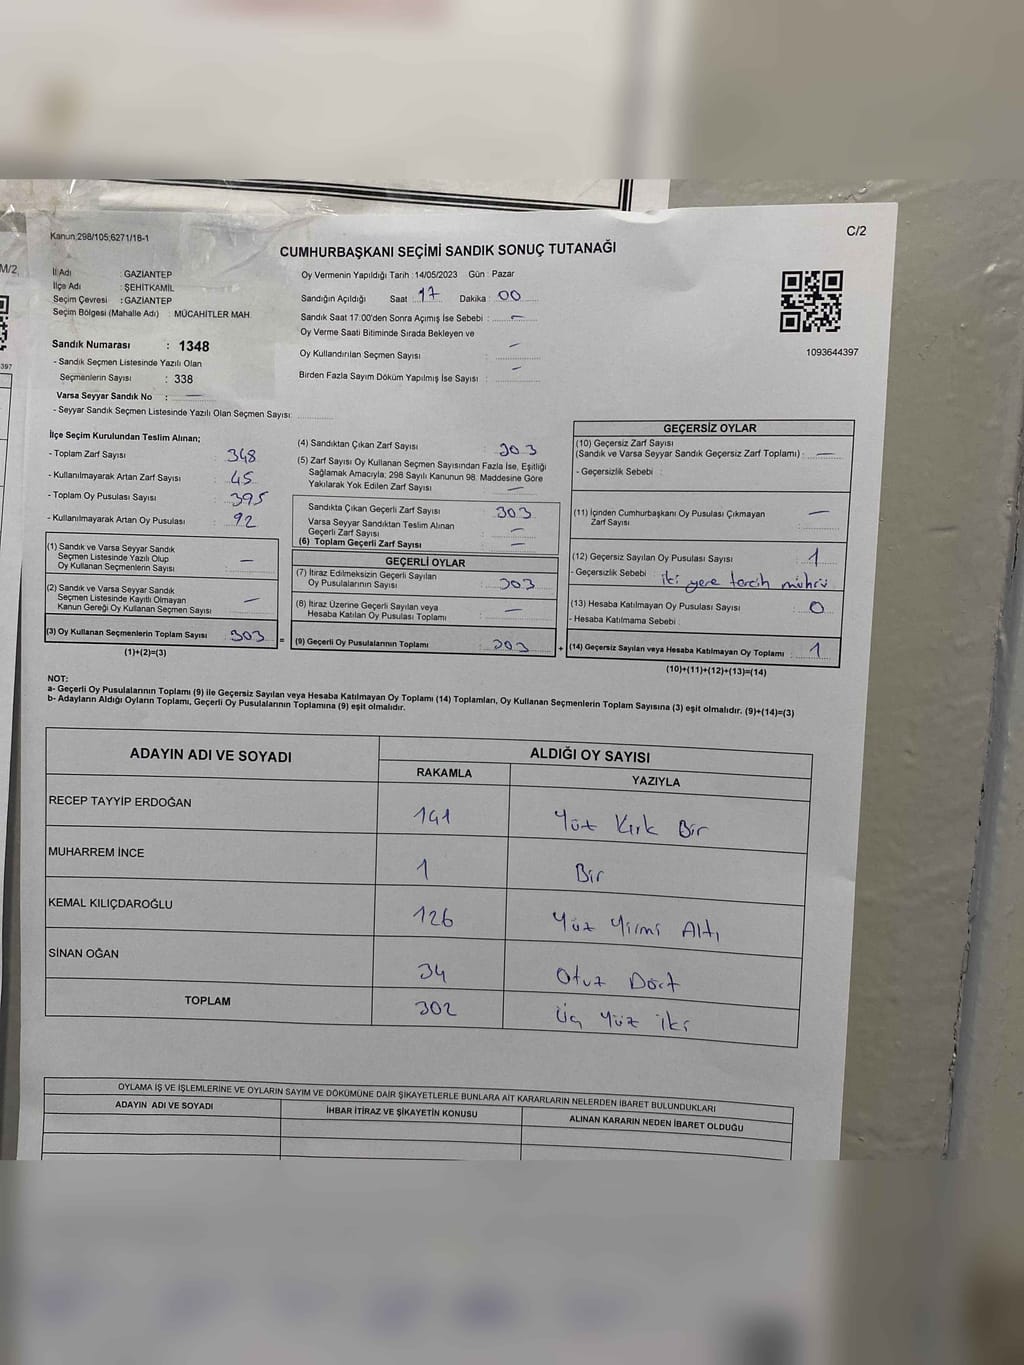 Kanun:298/105;6271/18-1
C/2
CUMHURBAŞKANI SEÇİMİ SANDIK SONUÇ TUTANAĞI
M/2
İl Adı : GAZİANTEP
İlçe Adı : ŞEHİTKAMİL
Seçim Çevresi : GAZİANTEP
Seçim Bölgesi (Mahalle Adı) : MÜCAHİTLER MAH.
Sandık Numarası : 1348
- Sandık Seçmen Listesinde Yazılı Olan
Seçmenlerin Sayısı : 338
Varsa Seyyar Sandık No : —
- Seyyar Sandık Seçmen Listesinde Yazılı Olan Seçmen Sayısı:
Oy Vermenin Yapıldığı Tarih : 14/05/2023 Gün : Pazar
Sandığın Açıldığı Saat 17 Dakika : 00
Sandık Saat 17:00'den Sonra Açımış İse Sebebi : —
Oy Verme Saati Bitiminde Sırada Bekleyen ve
Oy Kullandırılan Seçmen Sayısı : —
Birden Fazla Sayım Döküm Yapılmış İse Sayısı : —
1093644397
397
İlçe Seçim Kurulundan Teslim Alınan;
- Toplam Zarf Sayısı : 348
- Kullanılmayarak Artan Zarf Sayısı : 45
- Toplam Oy Pusulası Sayısı : 395
- Kullanılmayarak Artan Oy Pusulası : 92
(1) Sandık ve Varsa Seyyar Sandık
Seçmen Listesinde Yazılı Olup
Oy Kullanan Seçmenlerin Sayısı : —
(2) Sandık ve Varsa Seyyar Sandık
Seçmen Listesinde Kayıtlı Olmayan
Kanun Gereği Oy Kullanan Seçmen Sayısı : —
(3) Oy Kullanan Seçmenlerin Toplam Sayısı : 303 =
(1)+(2)=(3)
(4) Sandıktan Çıkan Zarf Sayısı : 303
(5) Zarf Sayısı Oy Kullanan Seçmen Sayısından Fazla İse, Eşitliği
Sağlamak Amacıyla; 298 Sayılı Kanunun 98. Maddesine Göre
Yakılarak Yok Edilen Zarf Sayısı : —
Sandıkta Çıkan Geçerli Zarf Sayısı : 303
Varsa Seyyar Sandıktan Teslim Alınan
Geçerli Zarf Sayısı : —
(6) Toplam Geçerli Zarf Sayısı : —
GEÇERLİ OYLAR
(7) İtiraz Edilmeksizin Geçerli Sayılan
Oy Pusulalarının Sayısı : 303
(8) İtiraz Üzerine Geçerli Sayılan veya
Hesaba Katılan Oy Pusulası Toplamı : —
(9) Geçerli Oy Pusulalarının Toplamı : 303 +
GEÇERSİZ OYLAR
(10) Geçersiz Zarf Sayısı
(Sandık ve Varsa Seyyar Sandık Geçersiz Zarf Toplamı) : —
- Geçersizlik Sebebi :
(11) İçinden Cumhurbaşkanı Oy Pusulası Çıkmayan
Zarf Sayısı : —
(12) Geçersiz Sayılan Oy Pusulası Sayısı : 1
- Geçersizlik Sebebi : iki yere tercih mührü
(13) Hesaba Katılmayan Oy Pusulası Sayısı : 0
- Hesaba Katılmama Sebebi :
(14) Geçersiz Sayılan veya Hesaba Katılmayan Oy Toplamı : 1
(10)+(11)+(12)+(13)=(14)
NOT:
a- Geçerli Oy Pusulalarının Toplamı (9) ile Geçersiz Sayılan veya Hesaba Katılmayan Oy Toplamı (14) Toplamları, Oy Kullanan Seçmenlerin Toplam Sayısına (3) eşit olmalıdır. (9)+(14)=(3)
b- Adayların Aldığı Oyların Toplamı, Geçerli Oy Pusulalarının Toplamına (9) eşit olmalıdır.
ADAYIN ADI VE SOYADI
ALDIĞI OY SAYISI
RAKAMLA YAZIYLA
RECEP TAYYİP ERDOĞAN 141 Yüz Kırk Bir
MUHARREM İNCE 1 Bir
KEMAL KILIÇDAROĞLU 126 Yüz Yirmi Altı
SİNAN OĞAN 34 Otuz Dört
TOPLAM 302 Üç Yüz iki
OYLAMA İŞ VE İŞLEMLERİNE VE OYLARIN SAYIM VE DÖKÜMÜNE DAİR ŞİKAYETLERLE BUNLARA AİT KARARLARIN NELERDEN İBARET BULUNDUKLARI
ADAYIN ADI VE SOYADI İHBAR İTİRAZ VE ŞİKAYETİN KONUSU ALINAN KARARIN NEDEN İBARET OLDUĞU